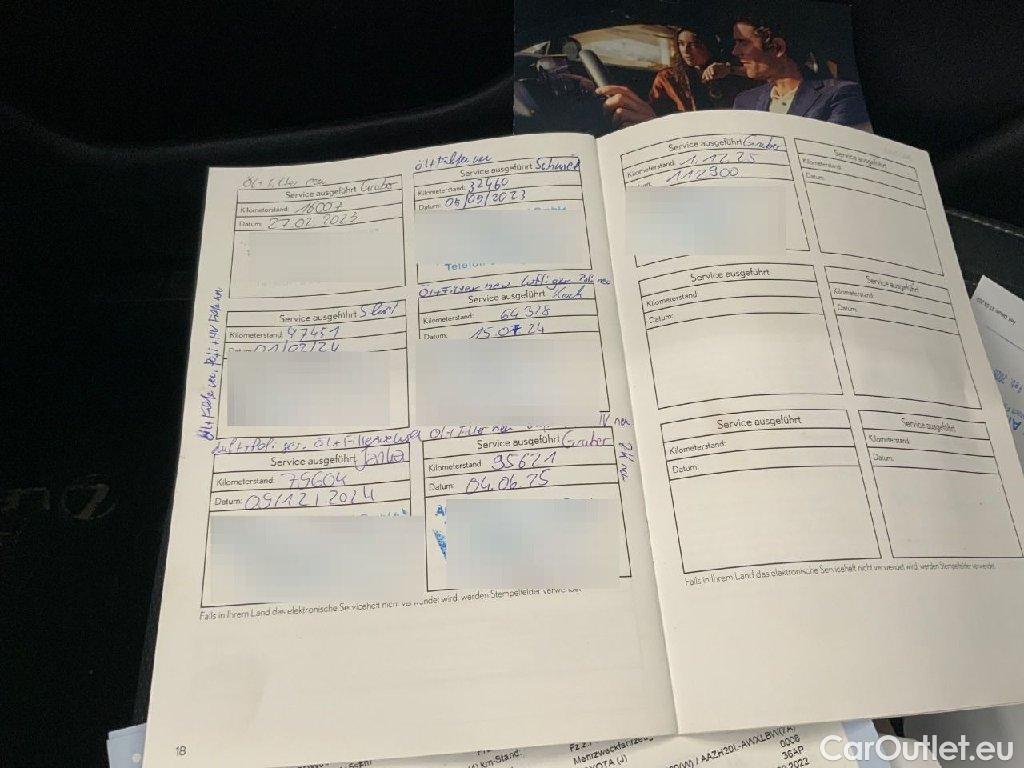 Öl+Filter neu
Service ausgeführt Gruber
Kilometerstand: 16007
Datum: 27.02.2023
Öl+Filter neu
Service ausgeführt Schurek
Kilometerstand: 32460
Datum: 05/09/2023
Telefon
Service ausgeführt
Kilometerstand: 47451
Datum: 01/02/24
Öl+Filter neu Luftfilter Poll neu
Service ausgeführt Koch
Kilometerstand: 64328
Datum: 15.07.24
Service ausgeführt
Kilometerstand: 79604
Datum: 09/12/2024
Öl+Filter neu
Service ausgeführt Gruber
Kilometerstand: 95621
Datum: 04.06.25
Falls in Ihrem Land das elektronische Serviceheft nicht verwendet wird, werden Stempelfelder verwendet.
18
Service ausgeführt Gruber
Kilometerstand: 1.12.25
112900
Service ausgeführt
Kilometerstand:
Datum:
Service ausgeführt
Kilometerstand:
Datum:
Service ausgeführt
Kilometerstand:
Datum:
Service ausgeführt
Kilometerstand:
Datum:
Service ausgeführt
Kilometerstand:
Datum:
Falls in Ihrem Land das elektronische Serviceheft nicht verwendet wird, werden Stempelfelder verwendet.
km-Stand:
Mehrzweckfahrzeug
CarOutlet.eu